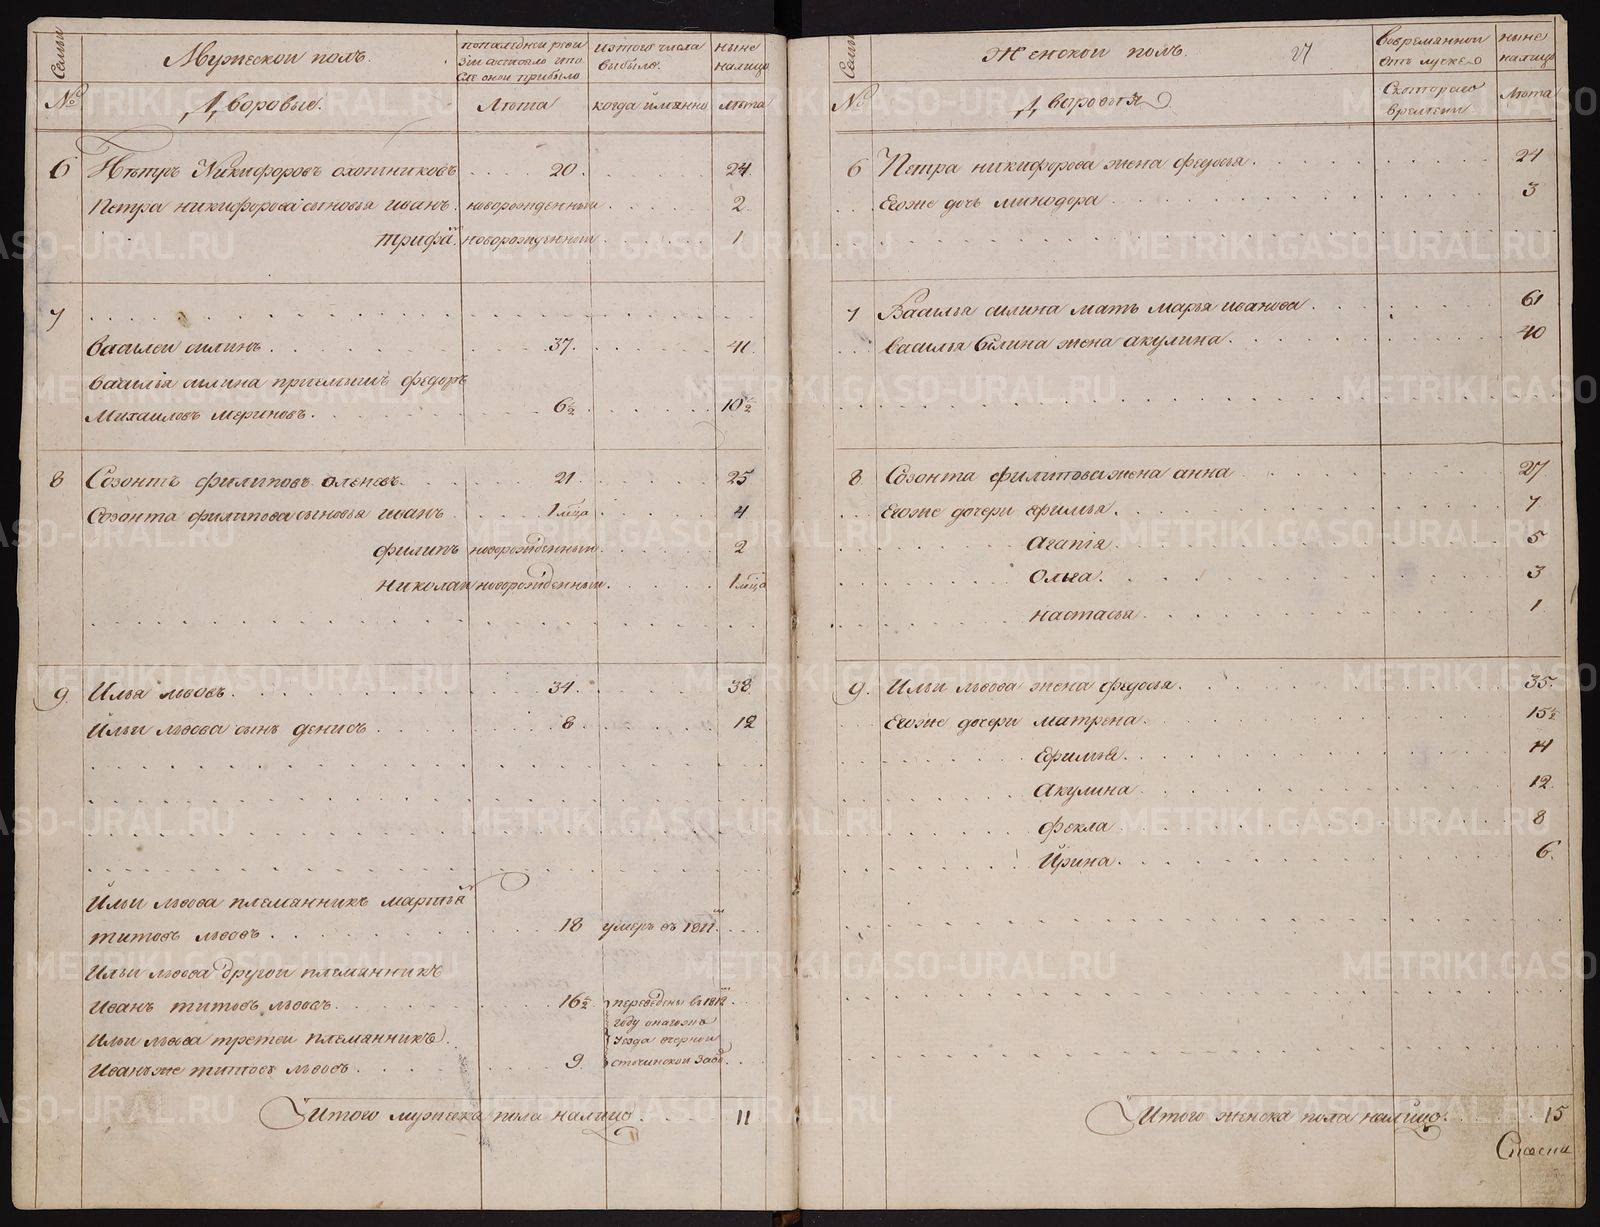 Семьи
Мужеской полъ.
по последней реви
зіи состояло ипо
сле оной прибыло
изтого числа
выбыло.
ныне
налицо
№
Дворовые.
Лѣта
когда имянно
лѣта
6 Пѣтръ Никифоровъ охотниковъ 20. 24.
Петра никифорова сыновья иванъ. новорожденный 2.
трифа. новорожденный 1
7
василеи силинъ. 37. 41.
василья силина приемышъ федоръ
михаиловъ мериновъ. 6½ 10½
8 Созонтъ филиповъ оленевъ. 21. 25
Созонта филипова сыновья иванъ 1 мца 4
филипъ новорожденный. 2
николаи новорожденный. 1 мца
9. Илья львовъ. 34. 38.
Ильи львова сынъ денисъ 8. 12
Ильи львова племянникъ
титовъ львовъ. 18 умеръ въ 1811.
Ильи львова другои племянникъ
Иванъ титовъ львовъ. 16½ переведены въ 1812
году
Ильи львова третеи племянникъ. уезда
Иванъ же титовъ львовъ 9.
Итого мужеска пола налицо 11
Семьи
Женскои полъ.
27
вовремяннои
отлучке
ныне
налицо
№
Дворовыя
Скотораго
времени
лѣта
6 Петра никифорова жена федосья. 24
Егоже дочь минодора 3
7 Василья силина мать марья иванова 61
василья Силина жена акулина. 40
8 Созонта филипова жена анна 27.
Егоже дочери ефимья. 7
Агапія 5
Ольга. 3
настасья 1
9. Ильи львова жена федосья. 35.
Егоже дочери матрена. 15½
Ефимья. 14
Акулина 12.
фекла 8
Ирина. 6.
Итого женска пола налицо. 15
METRIKI.GASO-URAL.RU